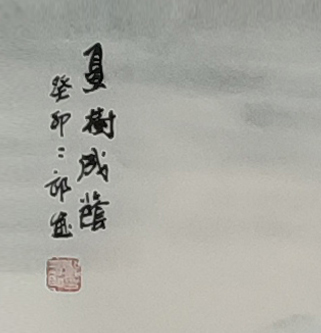 夏樹成蔭
癸卯二郎画